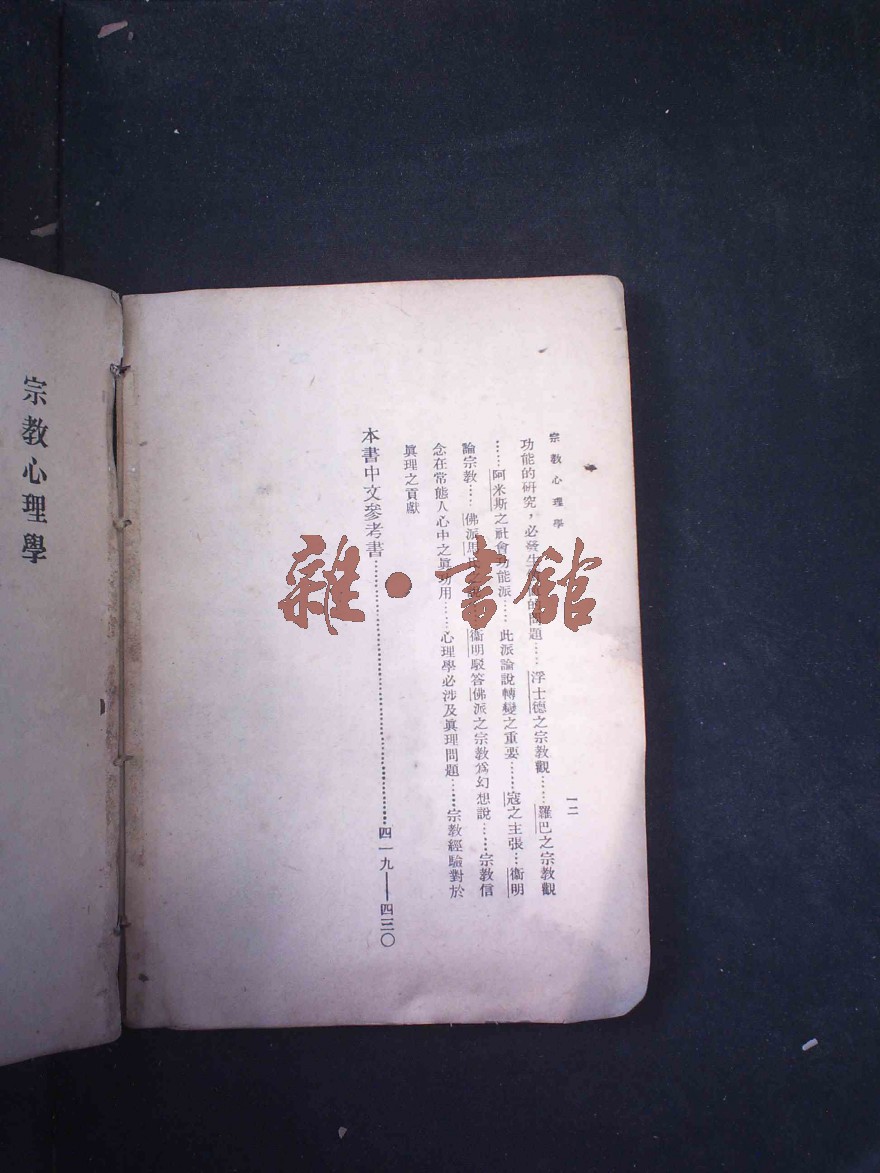 宗教心理學
一二
功能的研究，必發生的問題……浮士德之宗教觀……羅巴之宗教觀
……阿米斯之社會功能派……此派論說轉變之重要……寇之主張…衞明
論宗教……佛派衞明駁答佛派之宗教爲幻想說……宗教信
念在常態人心中之眞功用……心理學必涉及眞理問題……宗教經驗對於
眞理之貢獻
本書中文參考書……四一九——四三〇
宗教心理學
雜·書館